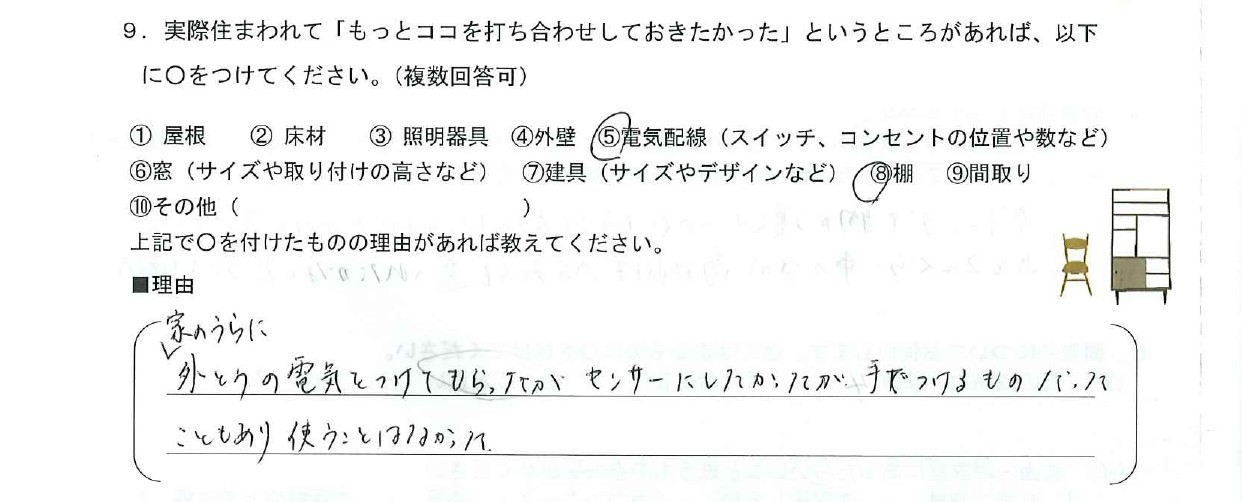 9．実際住まわれて「もっとココを打ち合わせしておきたかった」というところがあれば、以下
に〇をつけてください。（複数回答可）
① 屋根　② 床材　③ 照明器具　④外壁　⑤電気配線（スイッチ、コンセントの位置や数など）
⑥窓（サイズや取り付けの高さなど）　⑦建具（サイズやデザインなど）　⑧棚　⑨間取り
⑩その他（　　　　　　　　　　　　　　）
上記で〇を付けたものの理由があれば教えてください。
■理由
家のうらに
外とりの電気とつけてもらったが センサーにしたかったが 手でつけるものだった
こともあり 使うことはなかった